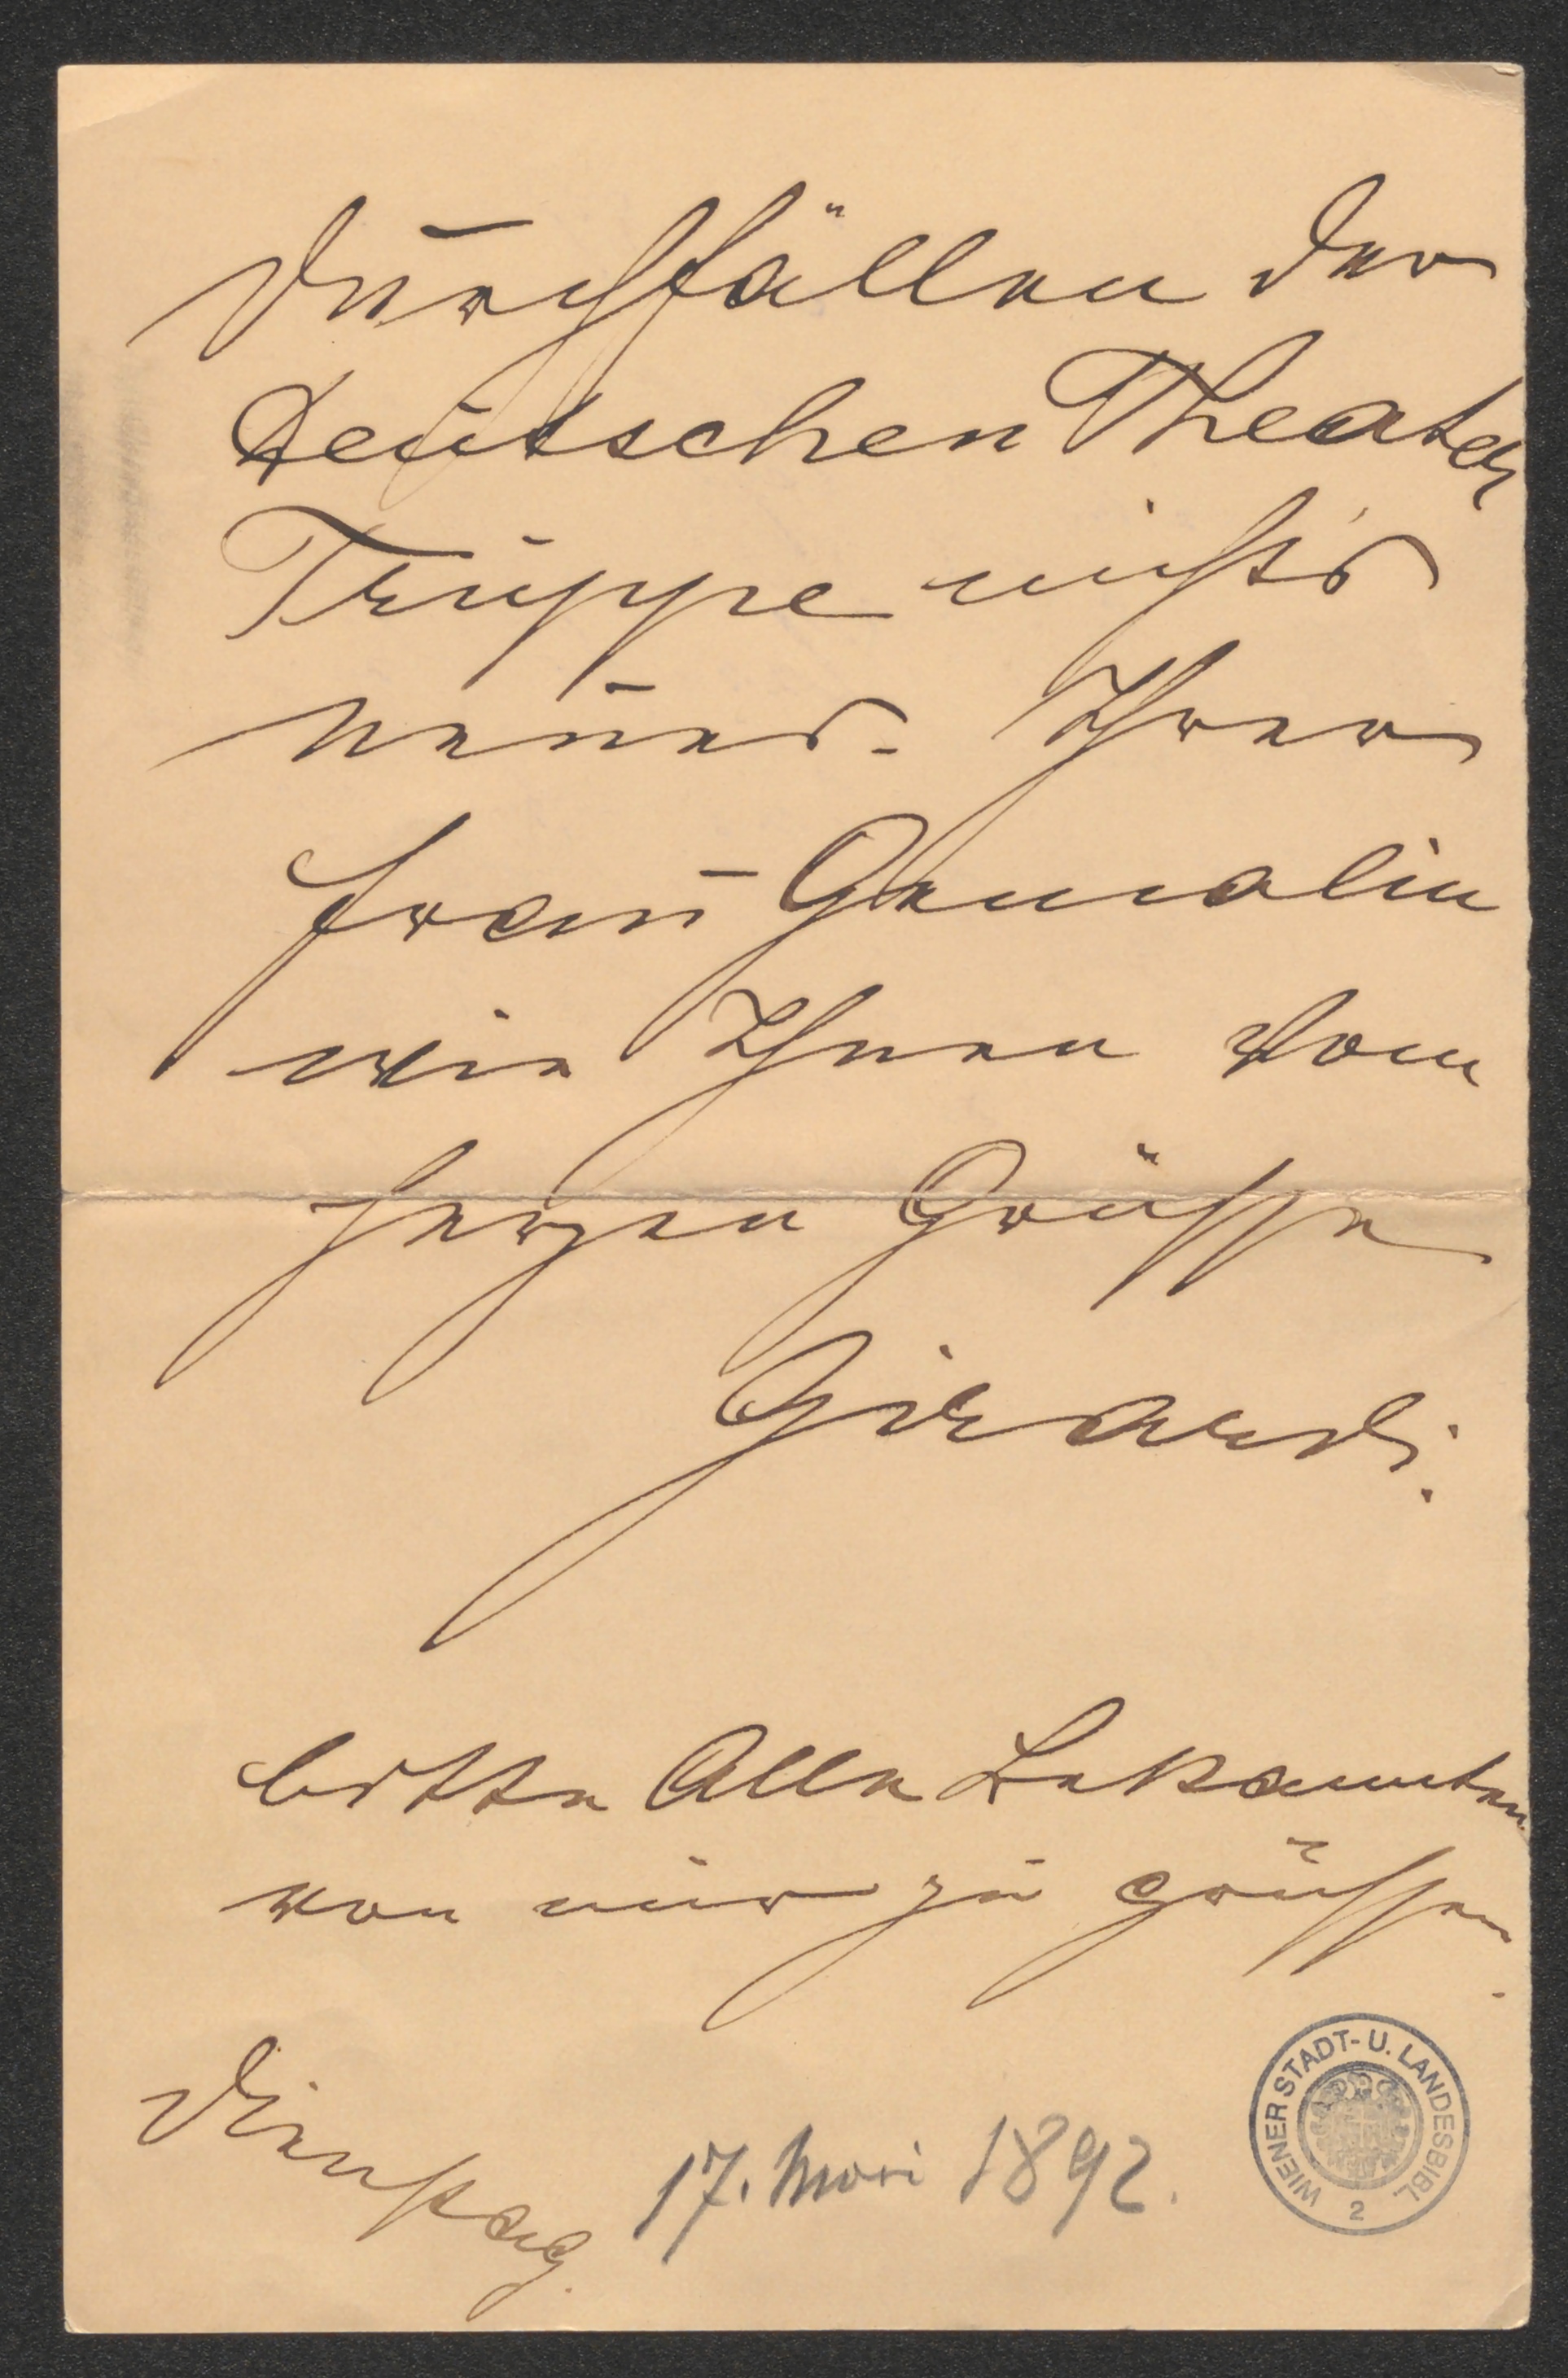 Durchfällen der
Deutschen Theater
Truppe nichts
neues. Ihrer
Frau Gemalin
wie Ihnen vom
Herzen Grüsse
Girardi.
bitte Alle Bekannten
von mir zu grüssen.
Dienstag.
17. Mai 1892.
WIENER STADT- U. LANDESBIBL.
2